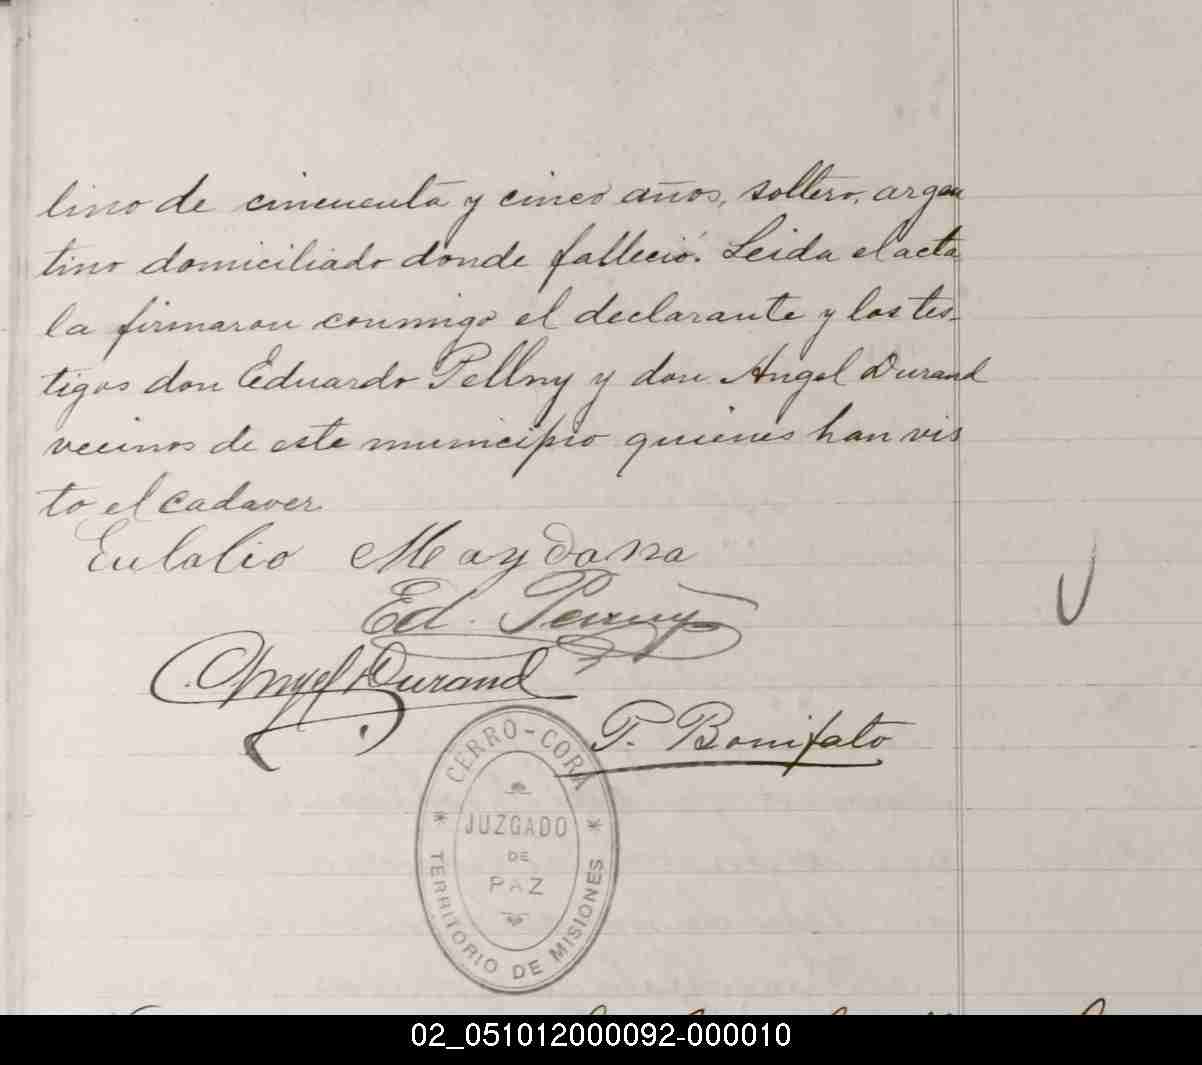 lino de cincuenta y cinco años, soltero, argen
tino domiciliado donde falleció. Leida el acta
la firmaron conmigo el declarante y los tes-
tigos don Eduardo Pellny y don Angel Durand
vecinos de este municipio quienes han vis
to el cadaver.
Eulalio Maydana
Ed. Perny
Angel Durand
P. Bonifato
CERRO-CORÁ
JUZGADO
DE
PAZ
TERRITORIO DE MISIONES
02_051012000092-000010